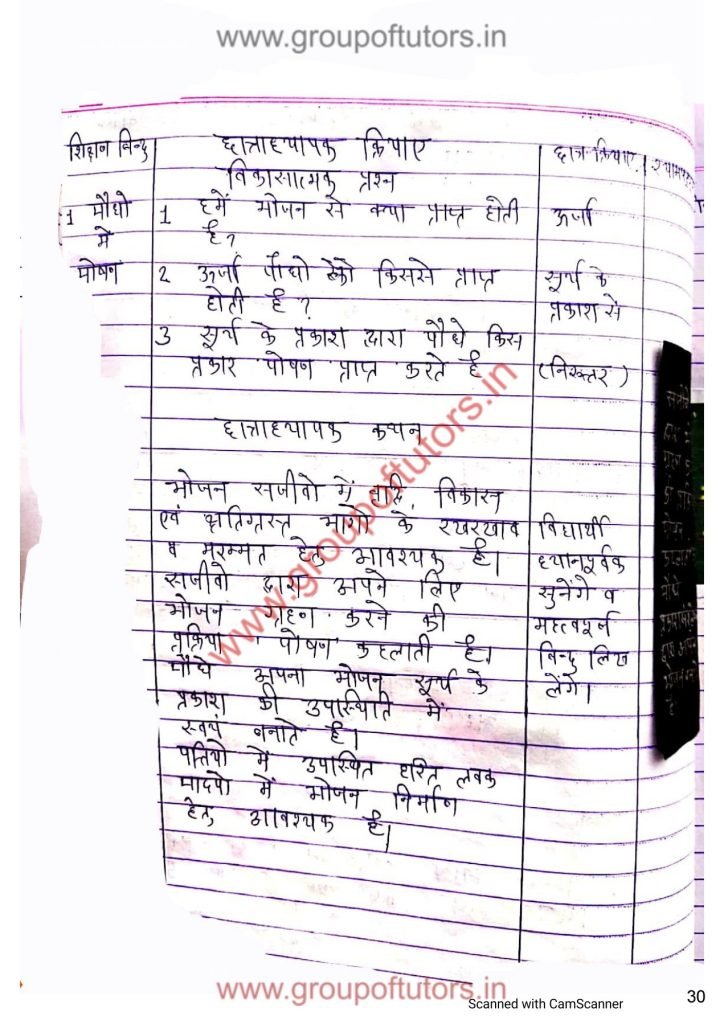 www.groupoftutors.in
शिक्षण बिन्दु
छात्राध्यापक क्रियाए
छात्र क्रियाए
विकासात्मक प्रश्न
1 पौधो
में
पोषन
1 हमें भोजन से क्या प्राप्त होती
है?
ऊर्जा
2 ऊर्जा पौधो को किससे प्राप्त
होती है ?
सूर्य के
प्रकाश से
3 सूर्य के प्रकाश द्वारा पौधे किस
प्रकार पोषण प्राप्त करते है
(निरुत्तर)
छात्राध्यापक कथन
भोजन सजीवो में वृद्धि, विकास
एवं क्षतिग्रस्त भागो के रखरखाव
व मरम्मत हेतु आवश्यक है।
सजीवो द्वारा अपने लिए
भोजन ग्रहण करने की
प्रक्रिया पोषण कहलाती है।
पौधे अपना भोजन सूर्य के
प्रकाश की उपस्थिति में
स्वयं बनाते है।
पतियो में उपस्थित हरित लवक
पादपो में भोजन निर्माण
हेतु आवश्यक है।
विद्यार्थी
ध्यानपूर्वक
सुनेंगे व
महत्वपूर्न
बिन्दु लिख
लेंगे।
www.groupoftutors.in
www.groupoftutors.in
Scanned with CamScanner
30